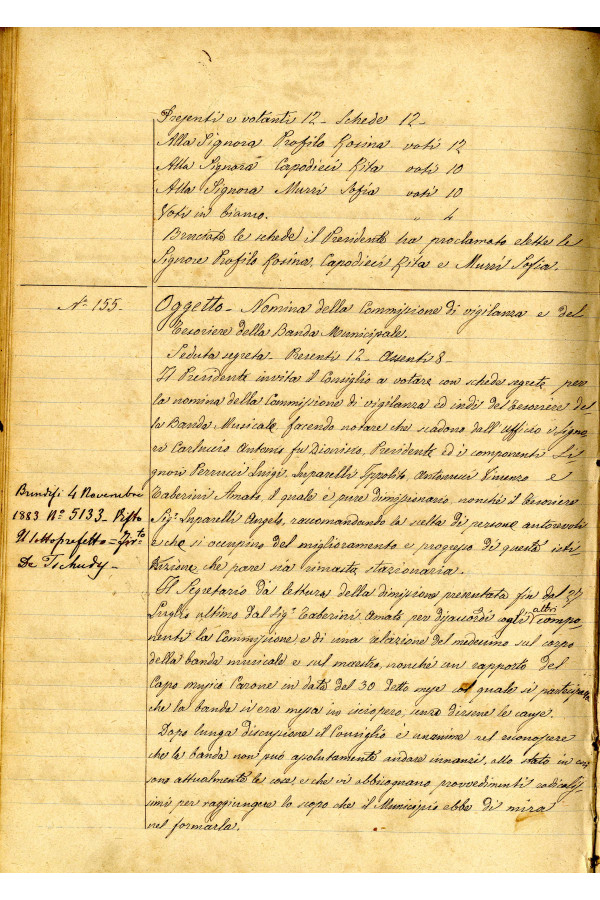 Presenti e votanti 12 - Schede 12 -
Alla Signora Profilo Rosina voti 12
Alla Signora Capodieci Rita voti 10
Alla Signora Murri Sofia voti 10
Voti in bianco. " 4
Bruciate le schede il Presidente ha proclamato elette le
Signore Profilo Rosina, Capodieci Rita e Murri Sofia.
N.° 155 -
Oggetto - Nomina della Commissione di vigilanza e del
Tesoriere della Banda Municipale.
Seduta segreta - Presenti 12 - Assenti 8 -
Il Presidente invita il Consiglio a votare con schede segrete per
la nomina della Commissione di vigilanza ed indi del Tesoriere del
la Banda Musicale, facendo notare che scadono dall'Ufficio i Signo
ri Carluccio Antonio fu Dionisio, Presidente ed i componenti Si
gnori Perrucci Luigi, Luparelli Ippolito, Antonucci Vincenzo e
Taberini Amato, il quale è pure dimissionario, nonchè il Tesoriere
Sig.r Luparelli Angelo, raccomandando la scelta di persone autorevoli
e che si occupino del miglioramento e progresso di questa isti-
tuzione, che pare sia rimasta stazionaria.
Brindisi 4 Novembre
1883 N.° 5133 - Visto
Il Sottoprefetto =
De Tschudy -
Il Segretario dà lettura della dimissione presentata fin dal 27
Luglio ultimo dal Sig.r Taberini Amato, per disaccordi agli altri compo
nenti la Commissione e di una relazione del medesimo sul corpo
della banda musicale e sul maestro, nonchè un rapporto del
Capo musico Carone in data del 30 detto mese col quale si partecipa
che la banda si era messa in isciopero, senza dirsene le cause.
Dopo lunga discussione il Consiglio è unanime nel riconoscere
che la banda non può assolutamente andare innanzi, allo stato in cui
sono attualmente le cose, e che vi abbisognano provvedimenti radicalis
simi per raggiungere lo scopo che il Municipio ebbe di mira
nel formarla.